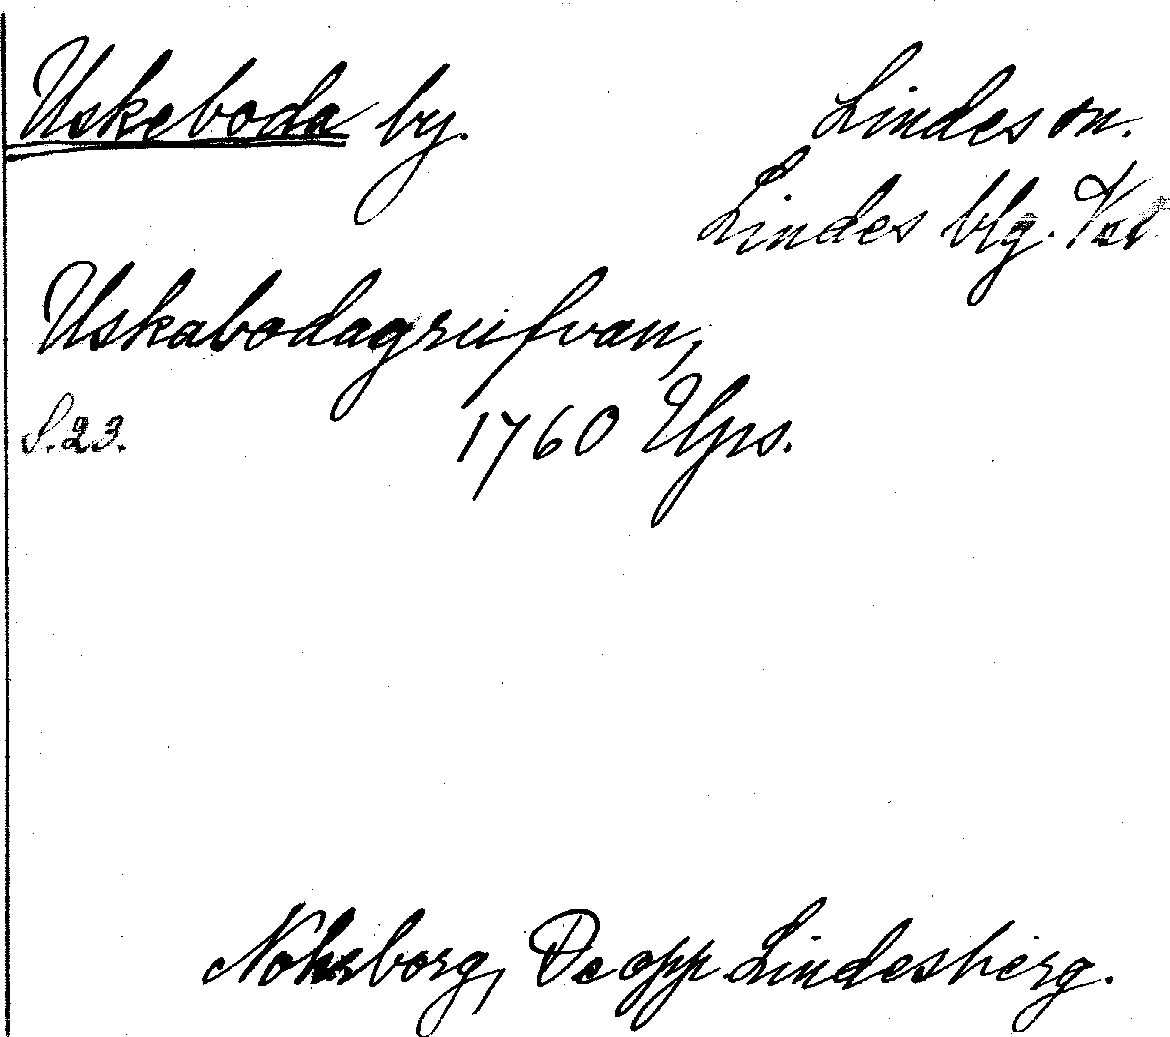 Uskeboda by. Lindes sn.
Lindes blg. Vstl
Uskabodagrufvan,
S.23. 1760 Ups.
Nohrborg, De opp Lindesberg.